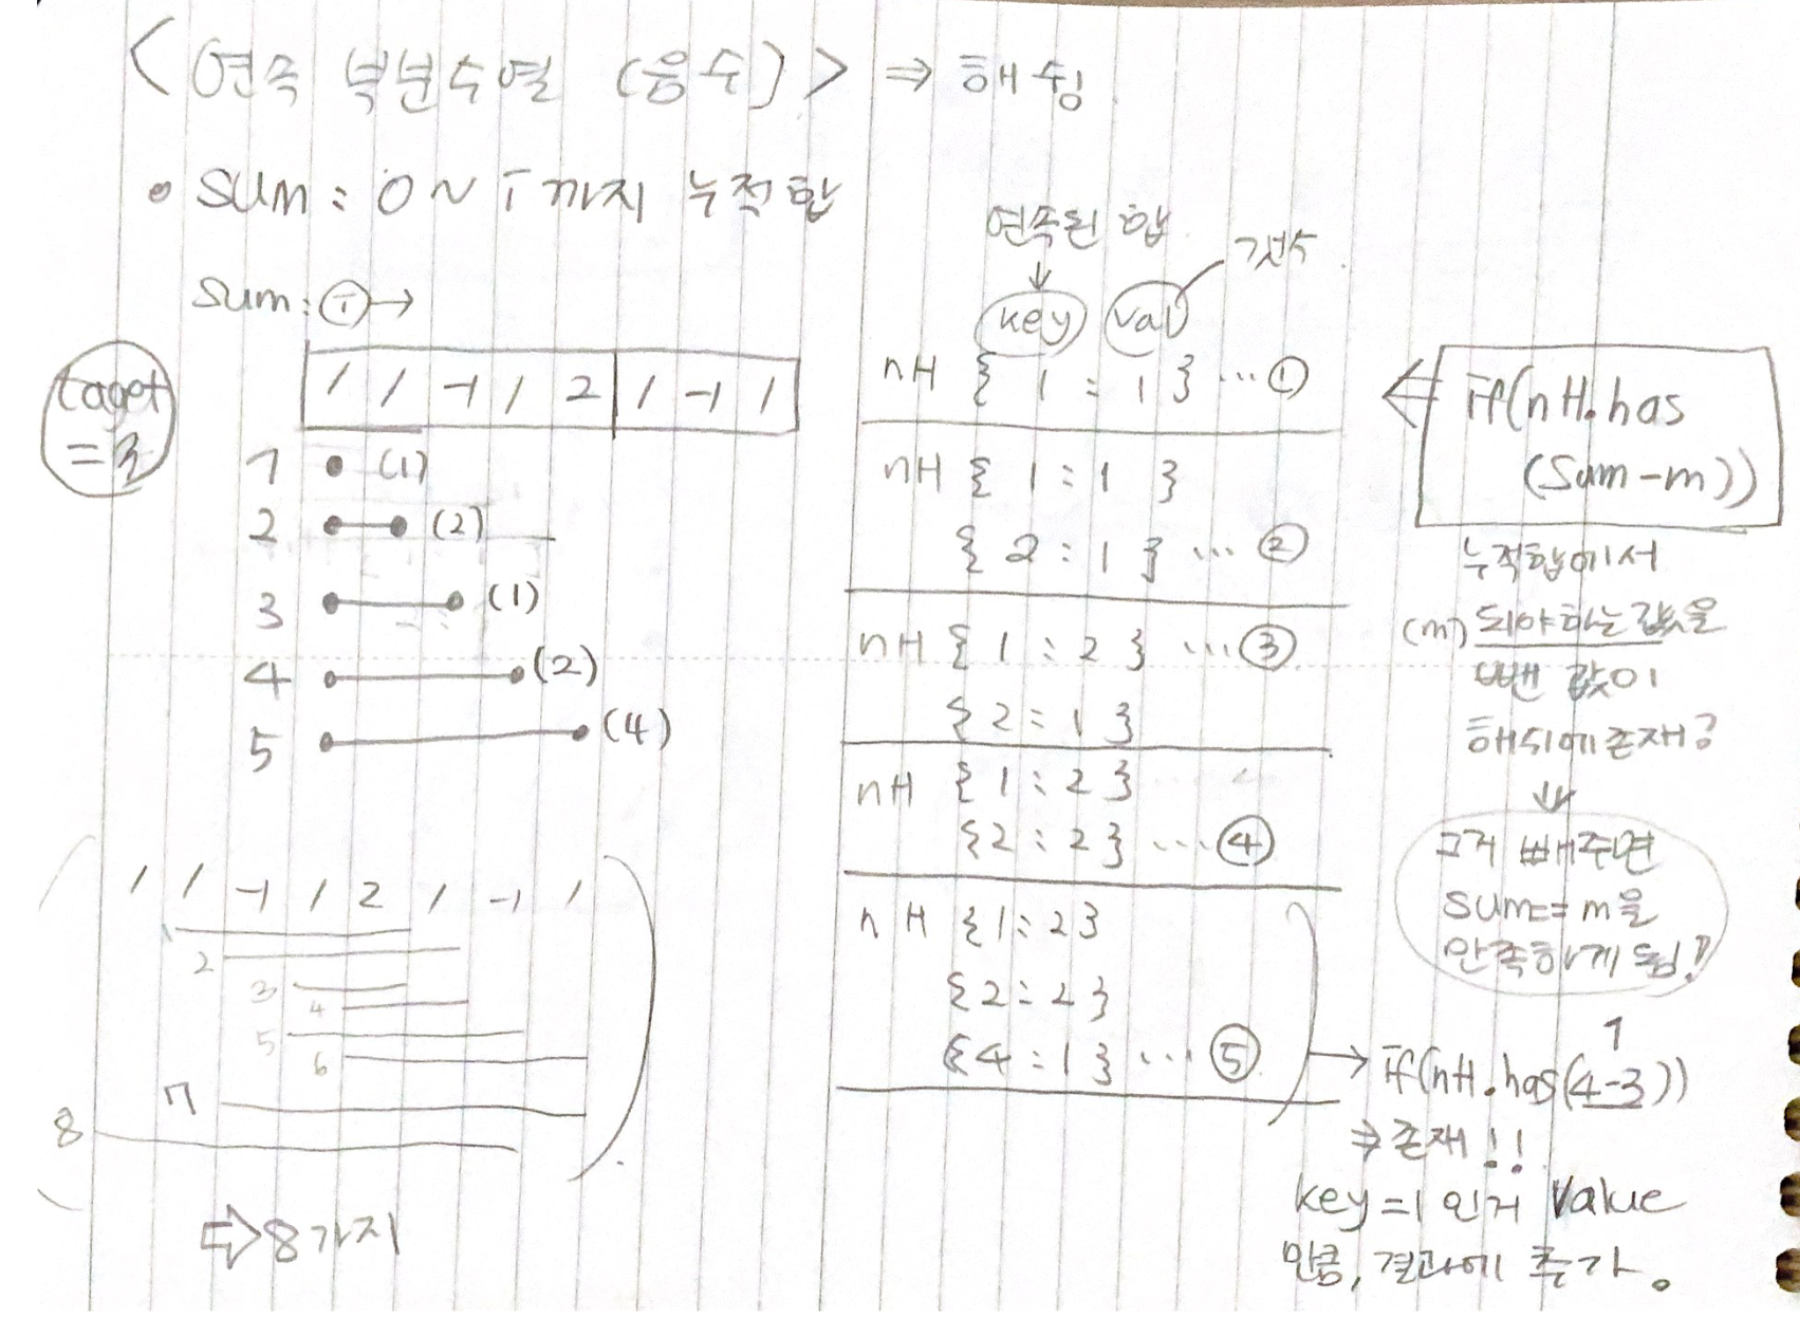 <연속 부분수열 (음수)> ⇒ 해싱
• sum : 0 ~ i까지 누적합
sum : i →
taget
= 3
1 1 -1 1 2 1 -1 1
1 (1)
2 (2)
3 (1)
4 (2)
5 (4)
1 1 -1 1 2 1 -1 1
1
2
3
4
5
6
7
8
⇒ 8가지
연속된 합
↓
갯수
key val
nH { 1 : 1 } ... ①
nH { 1 : 1 }
{ 2 : 1 } ... ②
nH { 1 : 2 } ... ③
{ 2 : 1 }
nH { 1 : 2 }
{ 2 : 2 } ... ④
nH { 1 : 2 }
{ 2 : 2 }
{ 4 : 1 } ... ⑤
⇐ if(nH.has
(Sum-m))
누적합에서
(m) 되야하는 값을
뺀 값이
해쉬에 존재?
↓
그거 빼주면
sum == m을
만족하게 됨!!
1
→ if(nH.has(4-3))
⇒ 존재!!
key=1 인거 Value
만큼, 결과에 추가.